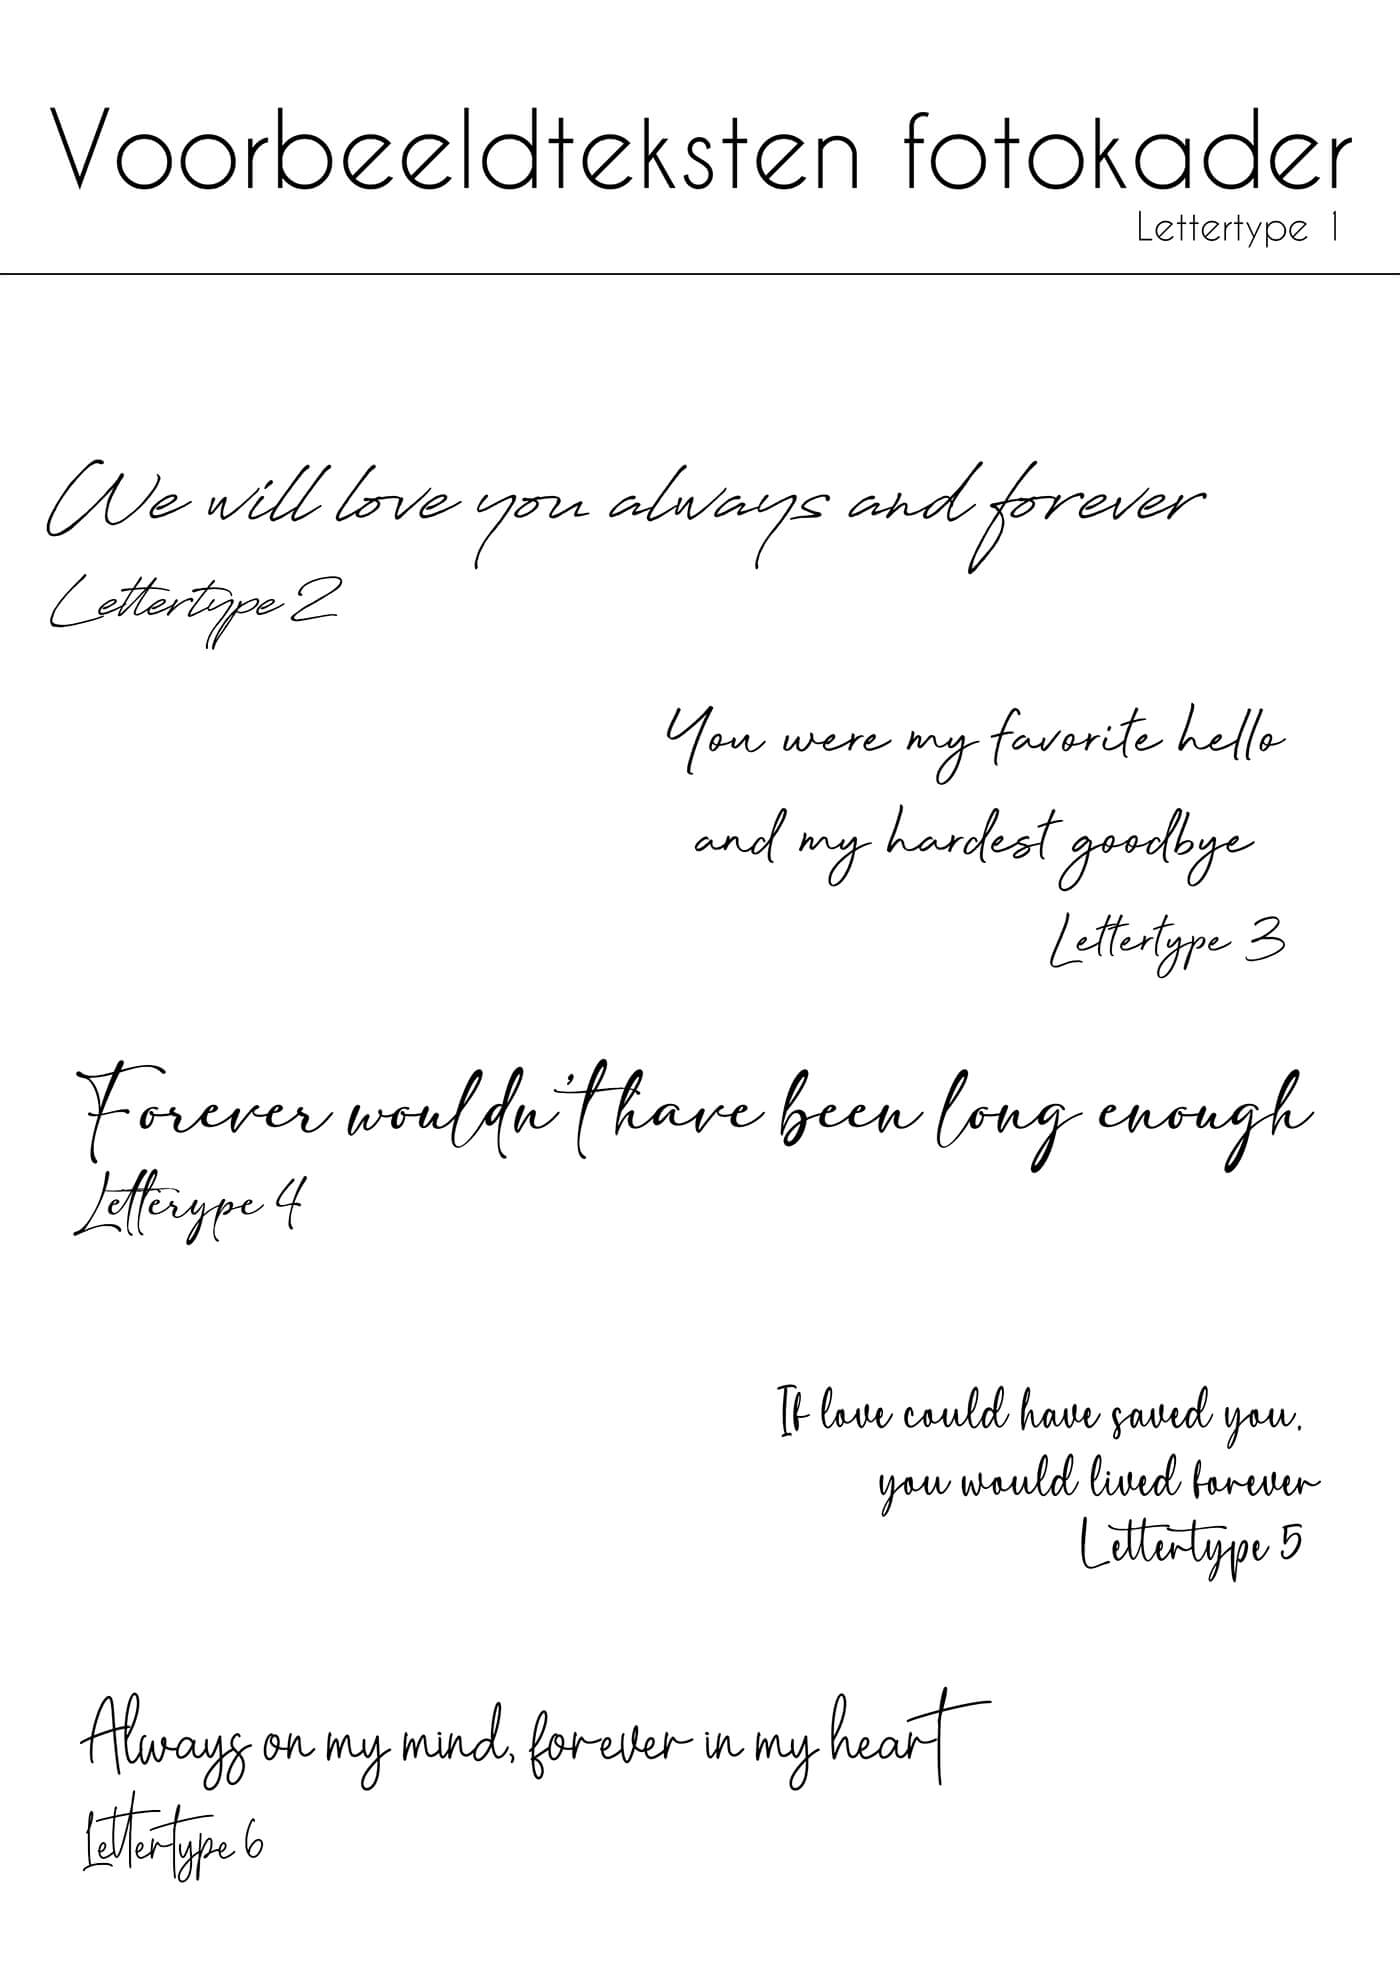 Voorbeeldteksten fotokader
Lettertype 1
We will love you always and forever
Lettertype 2
You were my favorite hello
and my hardest goodbye
Lettertype 3
Forever wouldn't have been long enough
Letterype 4
If love could have saved you,
you would lived forever
Lettertype 5
Always on my mind, forever in my heart
Lettertype 6